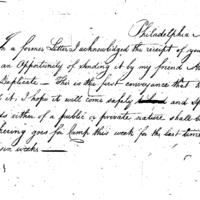 Philadelphia
In a former Letter I acknowledged the receipt of you
an Opportunity of sending it by my friend
Duplicate. This is the first conveyance that
it. I hope it will come safely and Sp
ds either of a public or private nature shall b
hering goes for Camp this week for the last time
six weeks